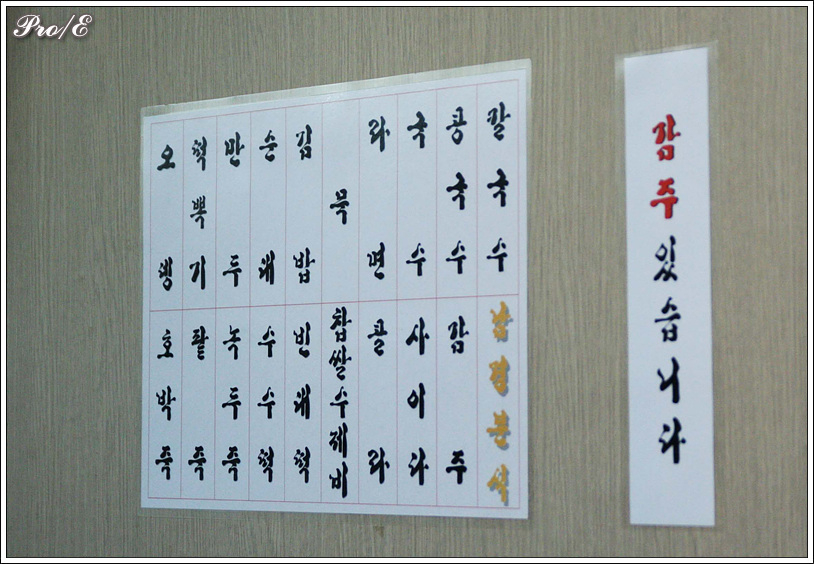 Pro/E
칼국수
콩국수
국수
라면
묵
김밥
순대
만두
떡뽁기
오뎅
감주
사이다
콜라
찹쌀수제비
빈대떡
수수떡
녹두죽
팥죽
호박죽
감주있습니다